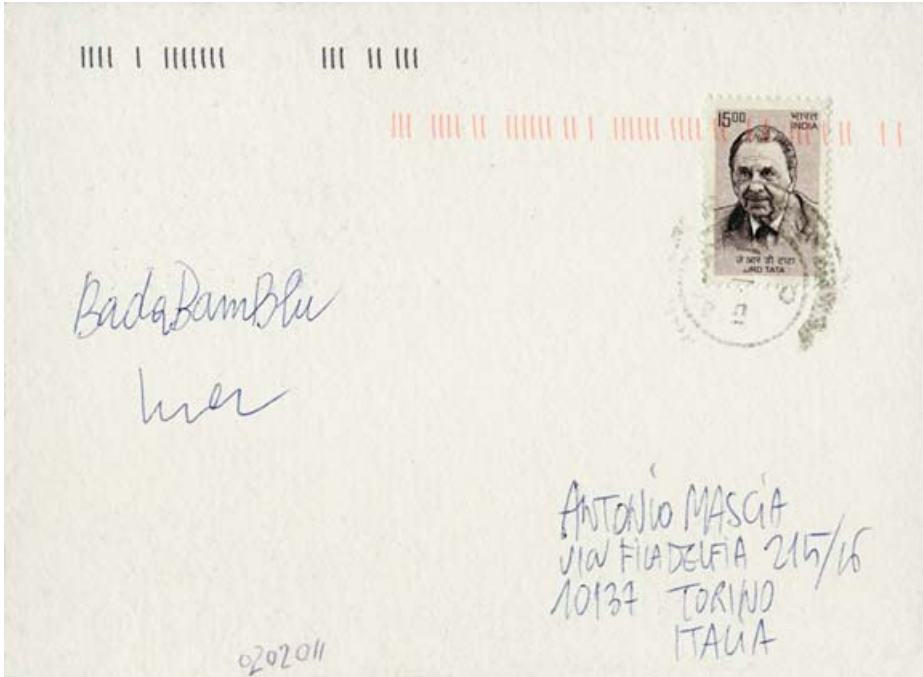 15.00 भारत
INDIA
जे आर डी टाटा
JRD TATA
BadaBamBlu
ANTONIO MASCIA
VIA FILADELFIA 215/16
10137 TORINO
ITALIA
0202011